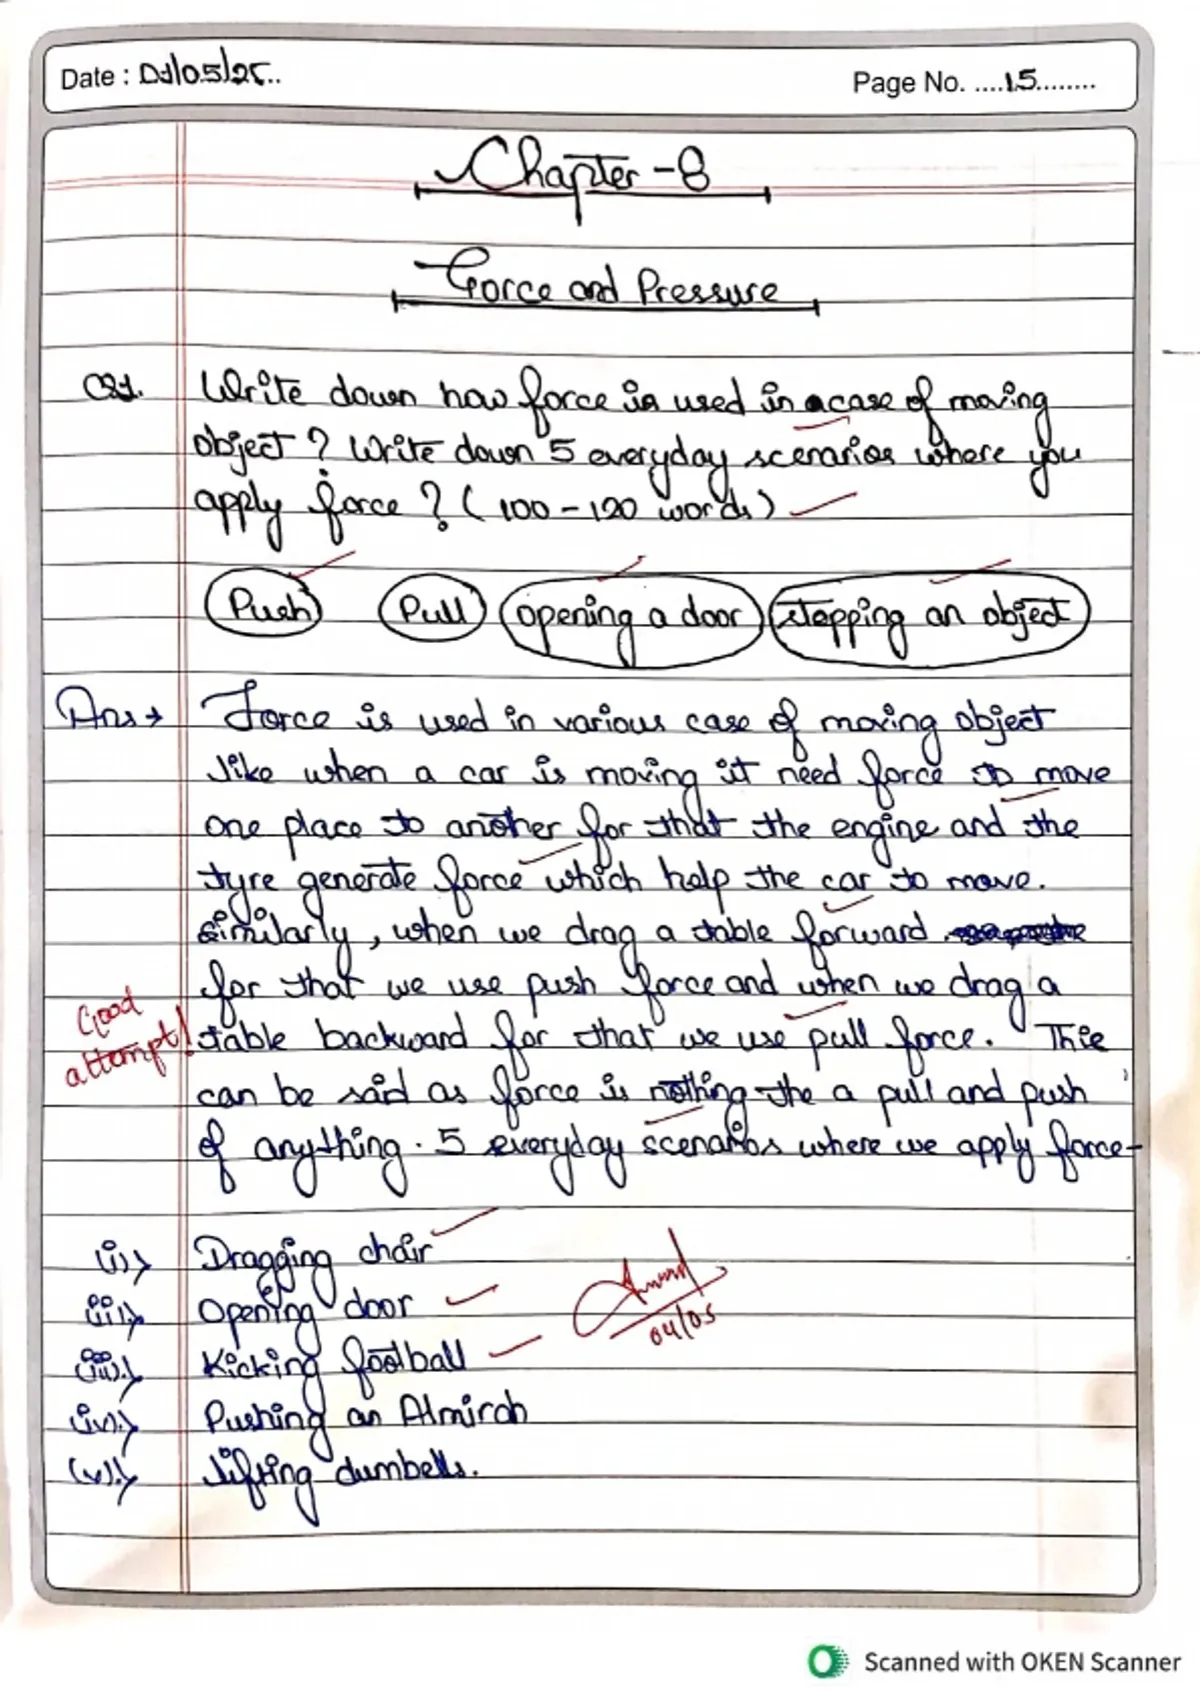 Date : 01/05/25..
Page No. ....15........
Chapter - 8
Force and Pressure
Q1. Write down how force is used in a case of moving
object ? Write down 5 everyday scenarios where you
apply force ? ( 100 - 120 words )
Push Pull opening a door stopping an object
Ans → Force is used in various case of moving object
like when a car is moving it need force to move
one place to another for that the engine and the
tyre generate force which help the car to move.
Similarly, when we drag a table forward
for that we use push force and when we drag a
Good
attempt!
table backward for that we use pull force. This
can be said as force is nothing the a pull and push
of anything. 5 everyday scenarios where we apply force-
(i) Dragging chair
(ii) Opening door
(iii) Kicking football
(iv) Pushing an Almirah
(v) Lifting dumbells.
04/05
Scanned with OKEN Scanner